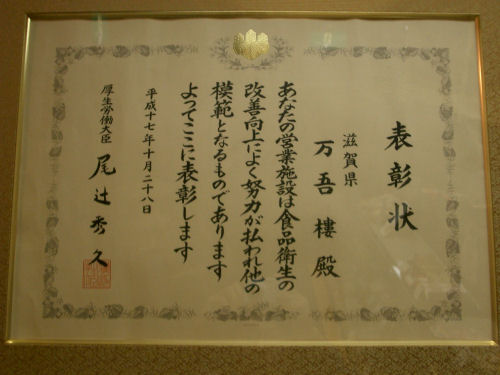 表彰状
滋賀県
万吾樓殿
あなたの営業施設は食品衛生の
改善向上によく努力が払われ他の
模範となるものであります
よってここに表彰します
平成十七年十月二十八日
厚生労働大臣 尾辻秀久